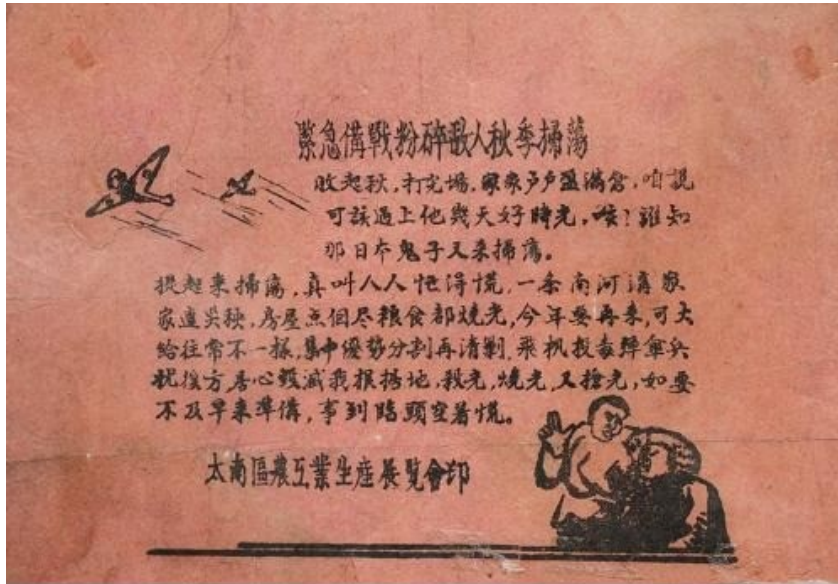 緊急備戰粉碎敵人秋季掃蕩
收起秋,打完場,家家戶戶盈滿倉,咱說
可該過上他幾天好時光,唉!誰知
那日本鬼子又来掃蕩。
提起来掃蕩,真叫人人恨得慌,一条南河溝家
家遭災殃,房屋点個尽粮食都燒光,今年要再来,可大
給往常不一樣,集中優势分割再清剿,飛机投毒彈傘兵
扰後方,居心毀滅我根據地,殺光,燒光,又搶光,如要
不及早来準備,事到臨頭空着慌。
太南區農工業生産展覧會印